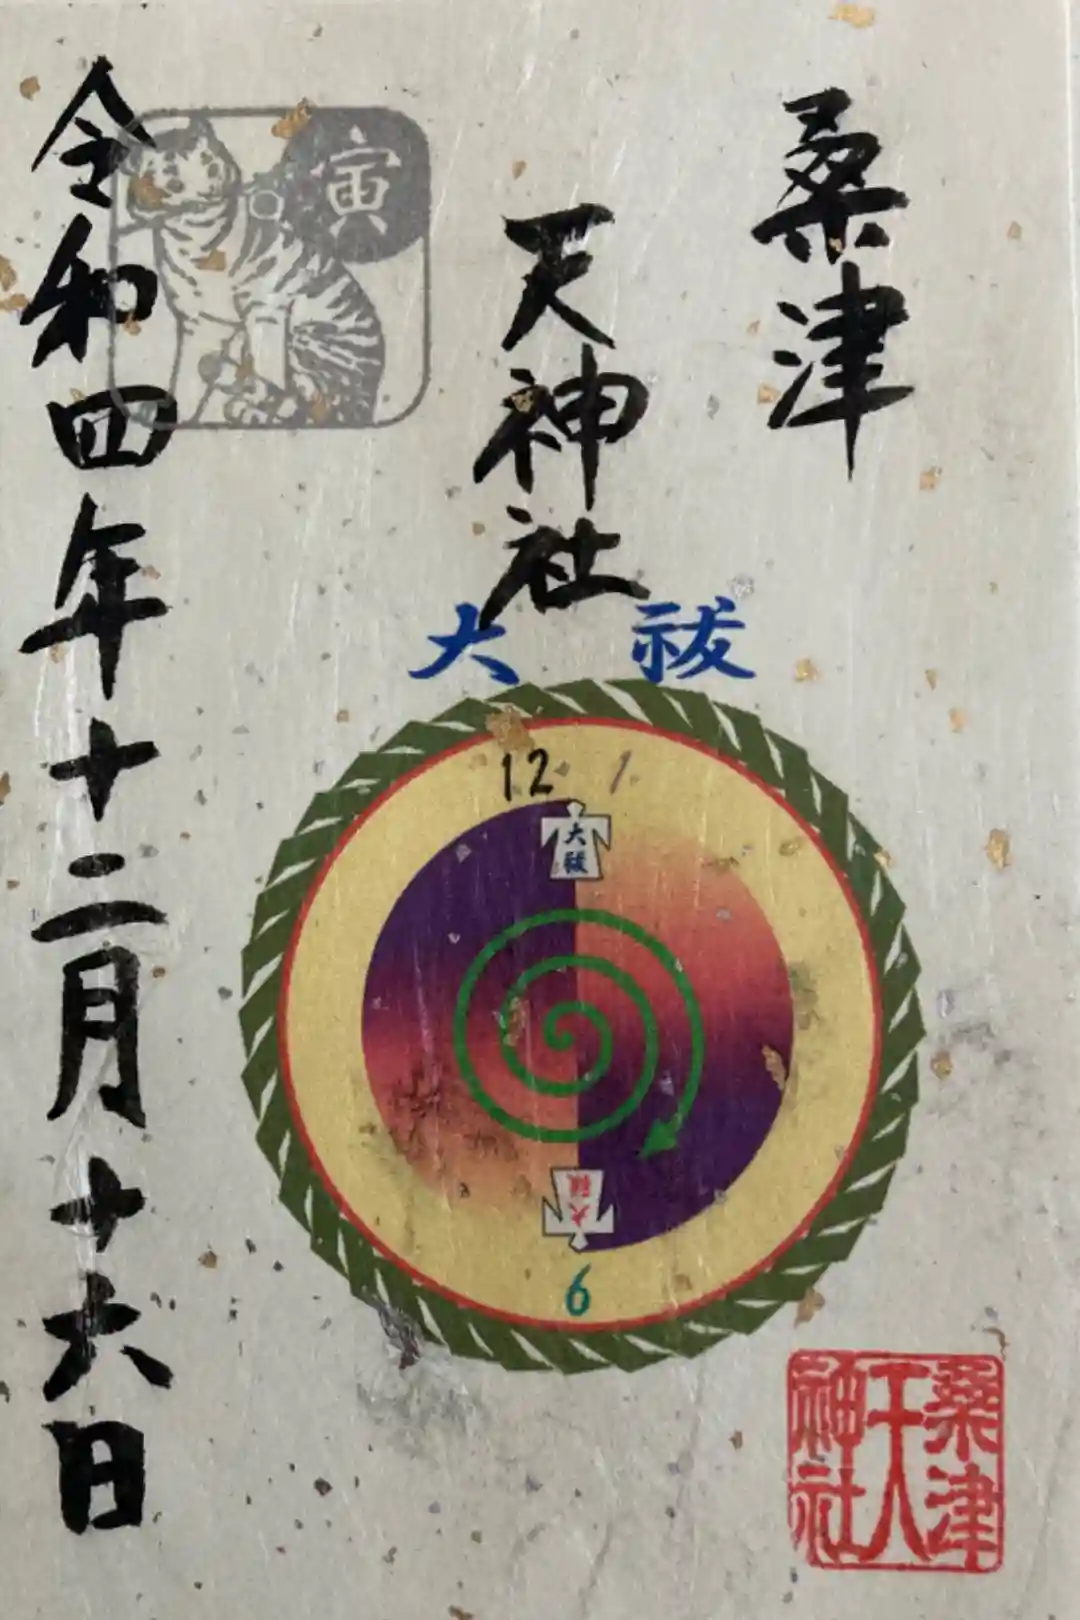 桑津
天神社
令和四年十二月十六日
寅
大祓
12 1
大祓
大祓
6
桑津
天
神社